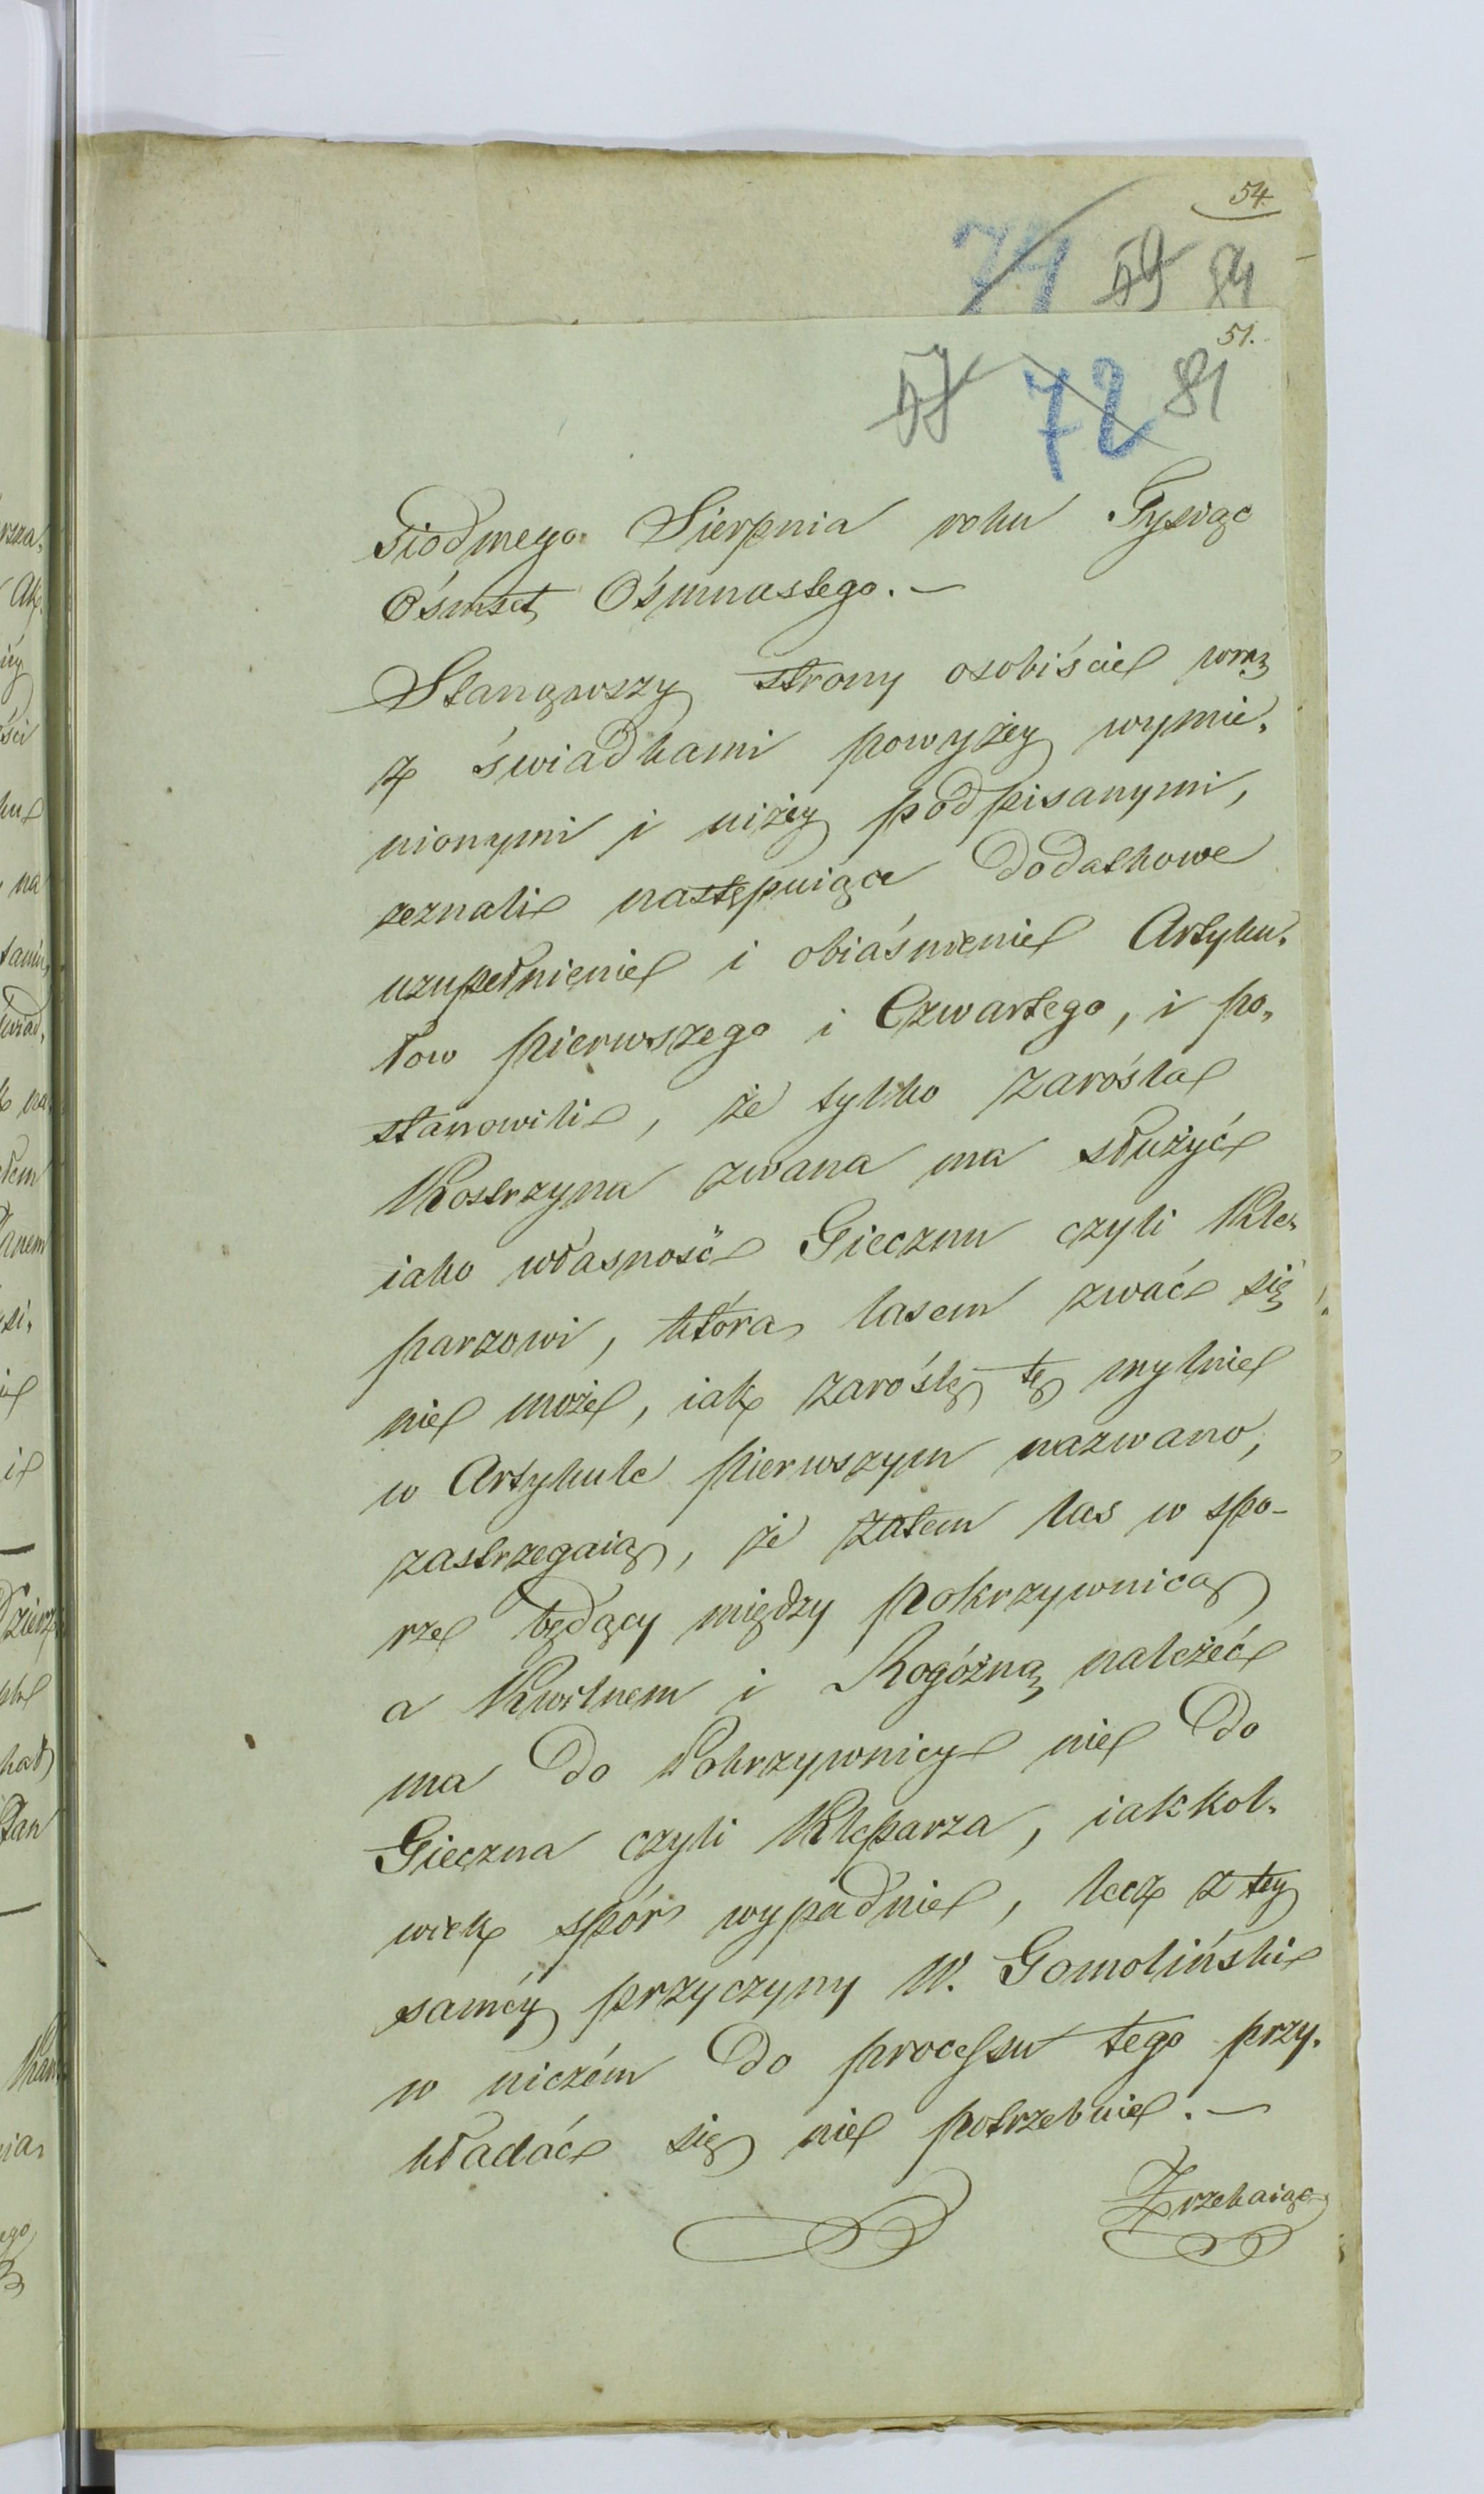 54.
74 59 84
51.
57 72 81
Siodmego Sierpnia roku Tysiąc
Ośmset Ośmnastego. —
Stanąwszy strony osobiście wraz
z świadkami powyżey wymie,
nionymi i niżey podpisanymi,
zeznali następuiące dodatkowe
uzupełnienie i obiaśnienie Artyku,
łow pierwszego i Czwartego, i po,
stanowili, że tylko zarośla
Kostrzyna zwana ma służyć
iako własność Giecznu czyli Kle,
parzowi, która lasem zwać się
nie może, iak zaroślę tę mylnie
w Artykule pierwszym nazwano,
zastrzegaią, że zatem las w spo-
rze będący między Pokrzywnicą
a Kwilnem i Rogóżną należeć
ma do Pokrzywnicy nie do
Gieczna czyli Kleparza, iakkol,
wiek spór wypadnie, lecz z tey
saméy przyczyny W. Gomoliński
w niczém do processu tego przy,
kładać się nie potrzebuie. —
Zrzekaiąc